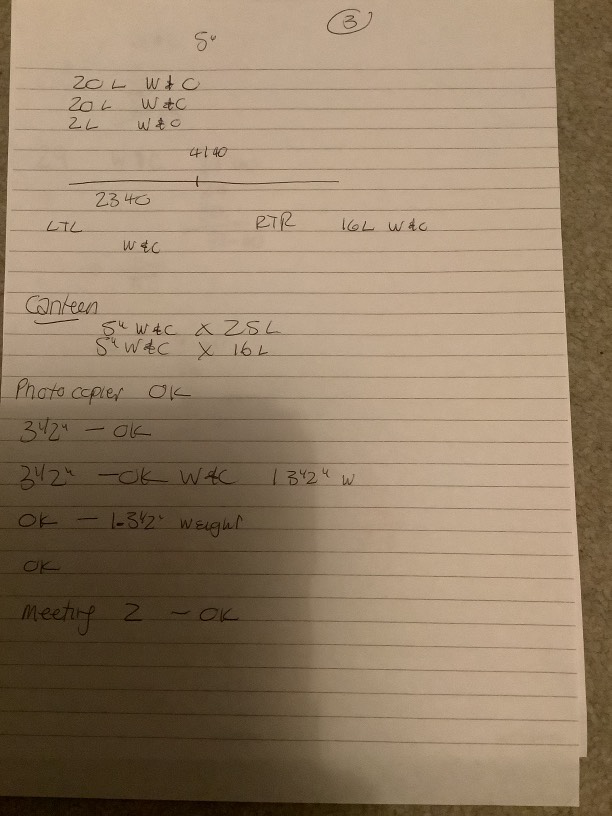 3
5"
20 L W & C
20 L W & C
2 L W & C
4140
2340
LTL RTR 16L W & C
W & C
Canteen
5" W & C X 25 L
5" W & C X 16 L
Photocopier OK
3 1/2" - OK
3 1/2" - OK W & C 1 3 1/2" W
OK - 1-3 1/2" weight
OK
Meeting 2 - OK